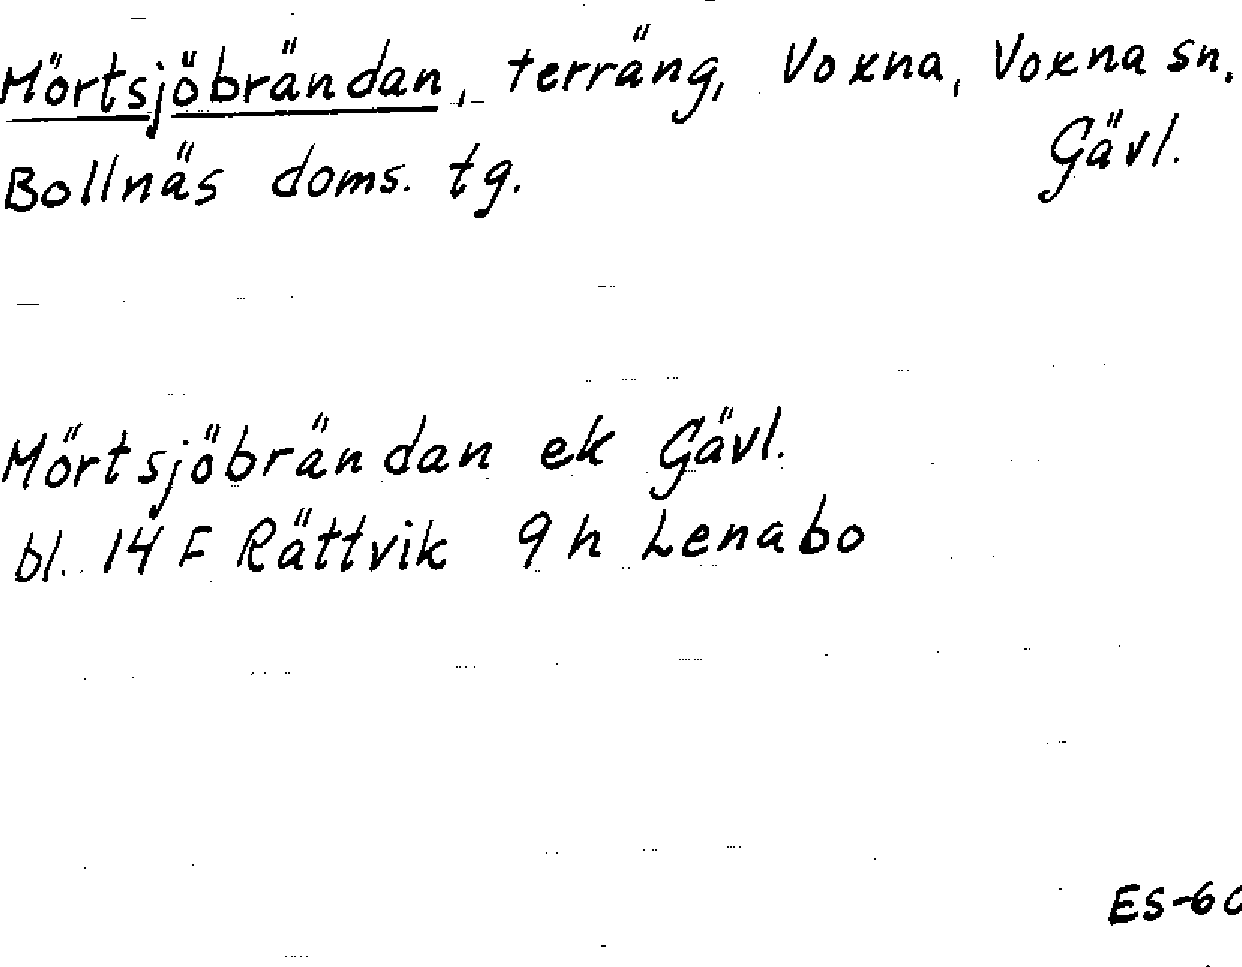 Mörtsjöbrändan, terräng, Voxna, Voxna sn.
Gävl.
Bollnäs doms. tg.
Mörtsjöbrändan ek Gävl.
bl. 14 F Rättvik 9 h Lenabo